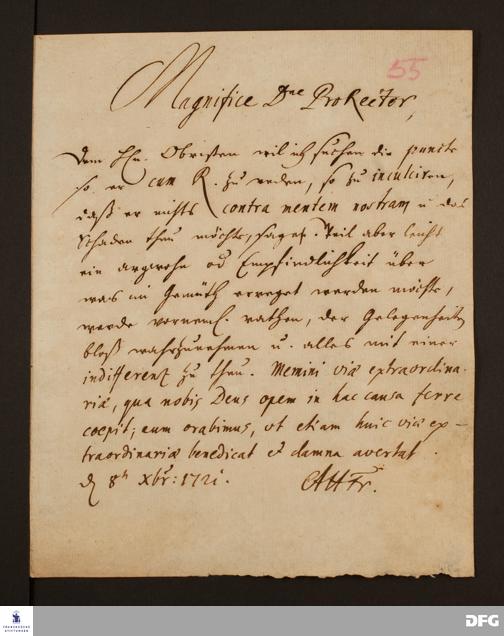 55
Magnifice Dne ProRector,
Dem Hn. Obristen wil ich suchen die puncte
so er cum R. zu reden, so zu inculciren,
daß er nichts contra mentem nostram u das
Schaden thun möchte, sage. Weil aber leicht
ein argwohn od Empfindlichkeit über
was im Gemüth erreget werden möchte,
werde vorneml. rathen, der Gelegenheit
bloß wahrzunehmen u. alles mit einer
indifferenz zu thun. Memini viæ extraordina-
riæ, qua nobis Deus opem in hac causa ferre
coepit; eum orabimus, ut etiam huic viæ ex-
traordinariæ benedicat et damna avertat.
d 8t Xbr: 1721.
AHFr.
FRANCKESCHE
STIFTUNGEN
DFG